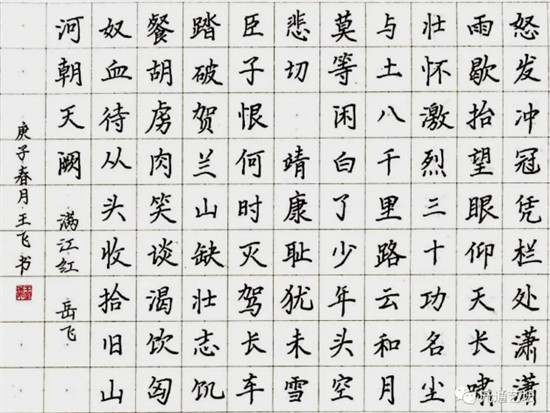 怒发冲冠凭栏处潇潇
雨歇抬望眼仰天长啸
壮怀激烈三十功名尘
与土八千里路云和月
莫等闲白了少年头空
悲切 靖康耻犹未雪
臣子恨何时灭驾长车
踏破贺兰山缺壮志饥
餐胡虏肉笑谈渴饮匈
奴血待从头收拾旧山
河朝天阙 满江红 岳飞
庚子春月·王飞书